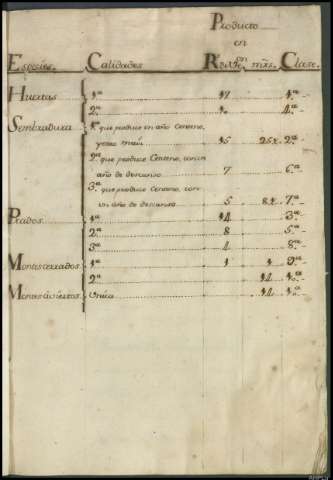 Producto
en
Especies. Calidades R.s de V.on mrs. Clase.
Huertas 1.ª 17 1.ª
2.ª 4.ª
Sembradura 1.ª que produce un año Centeno,
y otro maiz 15 25 2.ª
2.ª que produce Centeno, con un
año de descanso 7 6.ª
3.ª que produce Centeno, con
un año de descanso 5 8 7.ª
Prados 1.ª 14 3.ª
2.ª 8 5.ª
3.ª 4 8.ª
Montes cerrados 1.ª 1 1 9.ª
2.ª 14
Montes aviertos. Unica 14